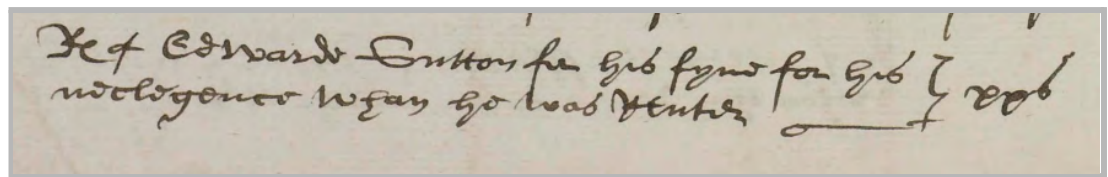 Re of Edwarde Sutton for his fyne for his } xxs
neclegence whan he was Renter